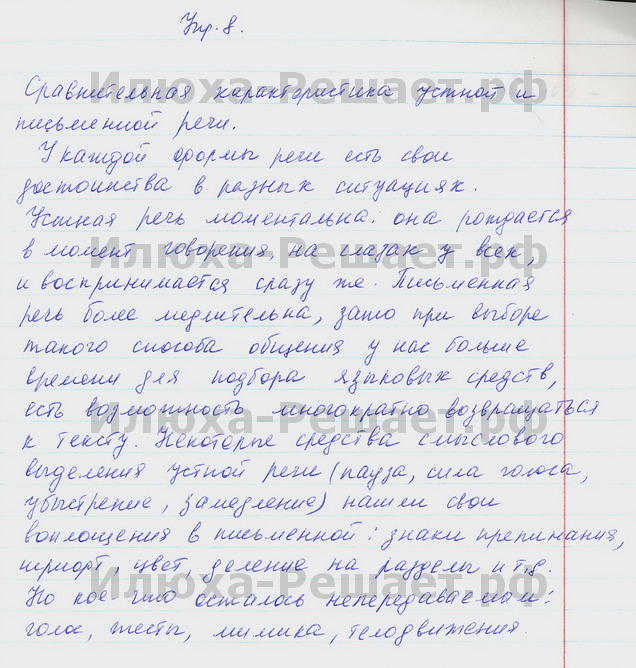 Упр. 8.
Сравнительная характеристика устной и
письменной речи.
У каждой формы речи есть свои
достоинства в разных ситуациях.
Устная речь моментальна: она рождается
в момент говорения, на глазах у всех,
и воспринимается сразу же. Письменная
речь более медлительна, зато при выборе
такого способа общения у нас больше
времени для подбора языковых средств,
есть возможность многократно возвращаться
к тексту. Некоторые средства смыслового
выделения устной речи (пауза, сила голоса,
убыстрение, замедление) нашли свои
воплощения в письменной: знаки препинания,
шрифт, цвет, деление на разделы и т.д.
Но кое-что осталось непередаваемым:
голос, жесты, мимика, телодвижения.
Илюха-Решает.рф
Илюха-Решает.рф
Илюха-Решает.рф
Илюха-Решает.рф